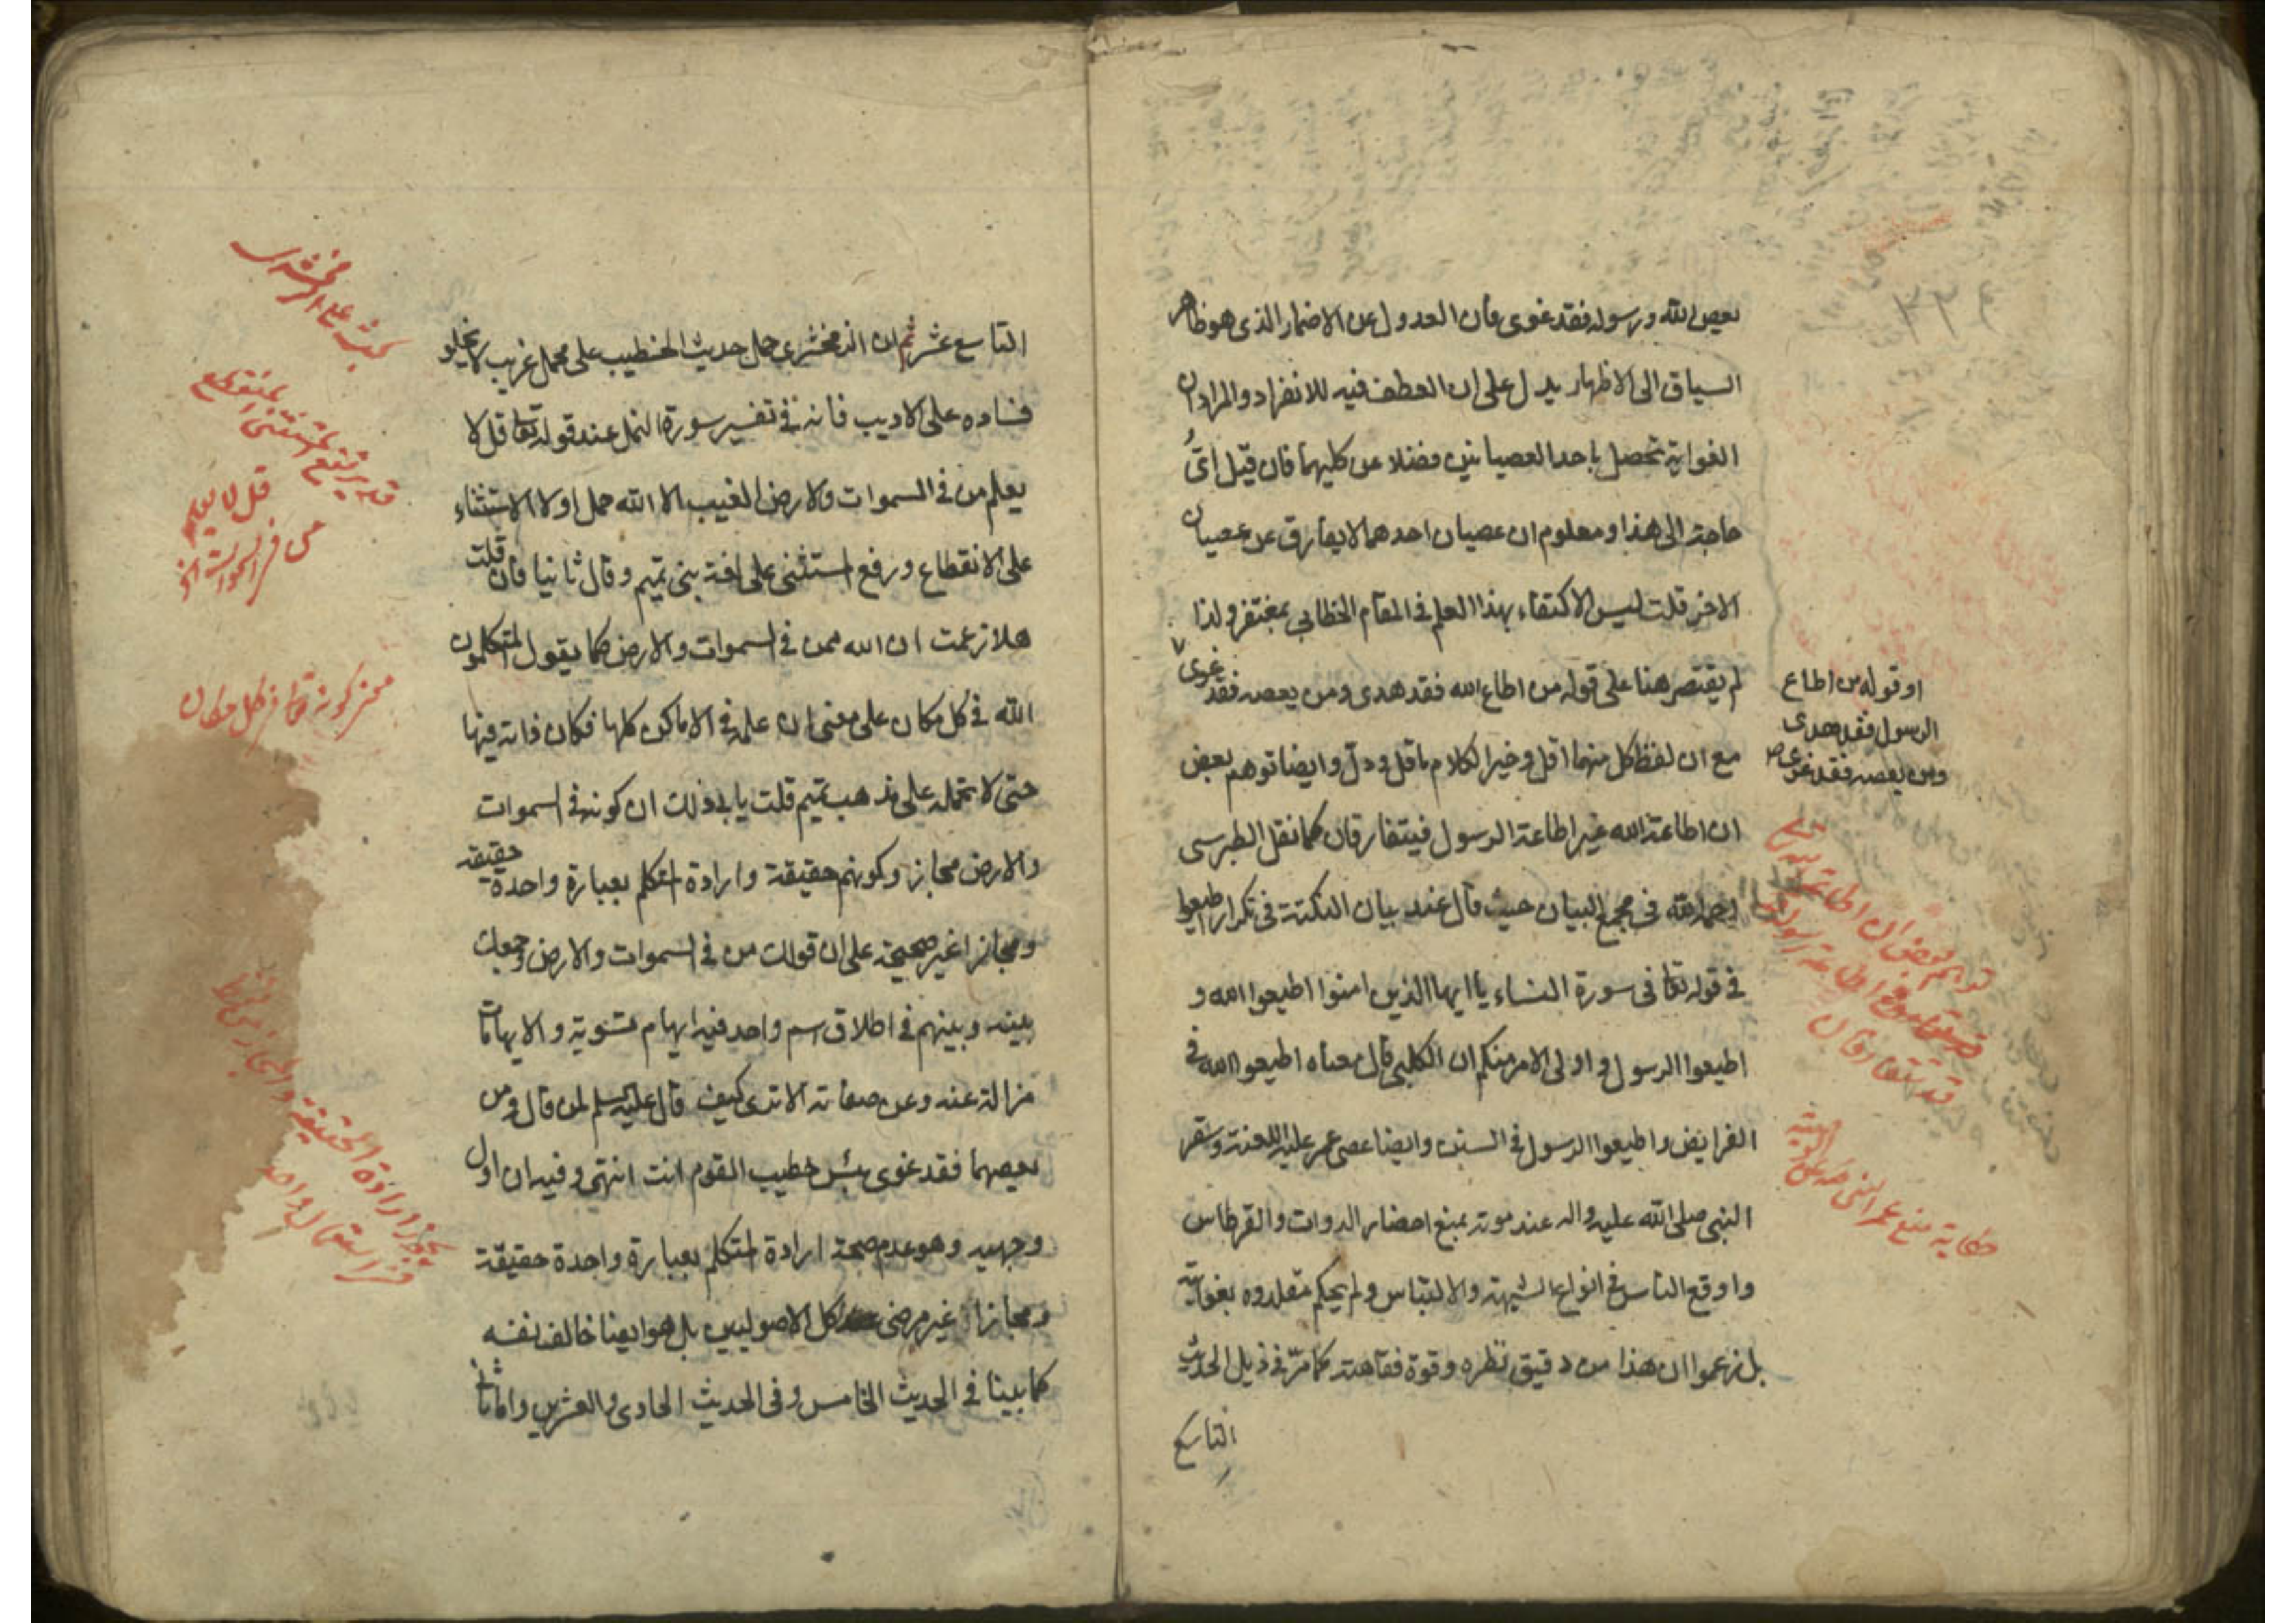 يعص الله ورسوله فقد غوى فان العدول عن الاضمار الذى هو ظاهر
السياق الى الاظهار يدل على ان العطف فيه للانفراد والمراد ان
الغواية تحصل باحد العصيانين فضلا عن كليهما فان قيل اىّ
حاجة الى هذا ومعلوم ان عصيان احدهما لا يفارق عن عصيان
الاخر قلت ليس الاكتفاء بهذا العلم فى المقام الخطابى بمغتفر ولذا
لم يقتصر هنا على قوله من اطاع الله فقد هدى ومن يعصه فقد غوى
او قوله من اطاع
الرسول فقد هدى
ومن يعصه فقد غوى
مع ان لفظ كل منهما اقل وخير الكلام ما قل ودل وايضا توهم بعض
ان اطاعة الله غير اطاعة الرسول فيتفارقان كما نقل الطبرسى
رحمه الله فى مجمع البيان حيث قال عند بيان النكتة فى تكرار اطيعوا
فى قوله تعا فى سورة النساء يا ايها الذين امنوا اطيعوا الله و
اطيعوا الرسول و اولى الامر منكم ان الكلبى قال معناه اطيعوا الله فى
الفرايض واطيعوا الرسول فى السنن وايضا عصى عمر عليه اللعنة وسقر
النبى صلى الله عليه واله عند موته بمنع احضار الدوات والقرطاس
واوقع الناس فى انواع الشبهة والالتباس ولم يحكم مقلدوه بغوايته
بل زعموا ان هذا من دقيق نظره وقوة فقاهته كما مرّ فى ذيل الحديث
التاسع
توهم بعض ان اطاعة الله
اطاعة رسوله
قد يتفارقان
حكاية منع عمر النبى
التاسع عشر ثم ان الزمخشرى حمل حديث الخطيب على محمل غريب لا يخلو
فساده على الاديب فانه فى تفسير سورة النمل عند قوله تعا قل لا
يعلم من فى السموات والارض الغيب الا الله حمل اولا الاستثناء
على الانقطاع ورفع المستثنى على لغة بنى تميم وقال ثانيا فان قلت
هلا زعمت ان الله ممن فى السموات والارض كما يقول المتكلمون
الله فى كل مكان على معنى ان علمه فى الاماكن كلها فكان ذاته فيها
حتى لا تحمله على مذهب تميم قلت يابى ذلك ان كونه فى السموات
والارض مجاز وكونهم حقيقة وارادة المتكلم بعبارة واحدة حقيقة
ومجازا غير صحيحة على ان قولك من فى السموات والارض وجمعك
بينه وبينهم فى اطلاق اسم واحد فيه ايهام تسوية والايهامات
مزالة عنه وعن صفاته الا ترى كيف قال عليه السلم لمن قال ومن
يعصهما فقد غوى بئس خطيب القوم انت انتهى وفيه ان اول
وجهيه وهو عدم صحة ارادة المتكلم بعبارة واحدة حقيقة
ومجازا غير مرضى كل الاصوليين بل هو ايضا خالف نفسه
كما بينا فى الحديث الخامس وفى الحديث الحادى والعشرين واما ثانى
بحث على الزمخشرى
قد يرتفع المستثنى المنقطع
قل لا يعلم
من فى السموات الخ
معنى كونه تعا فى كل مكان
يجوز ارادة الحقيقة والمجاز
فى استعمال واحد